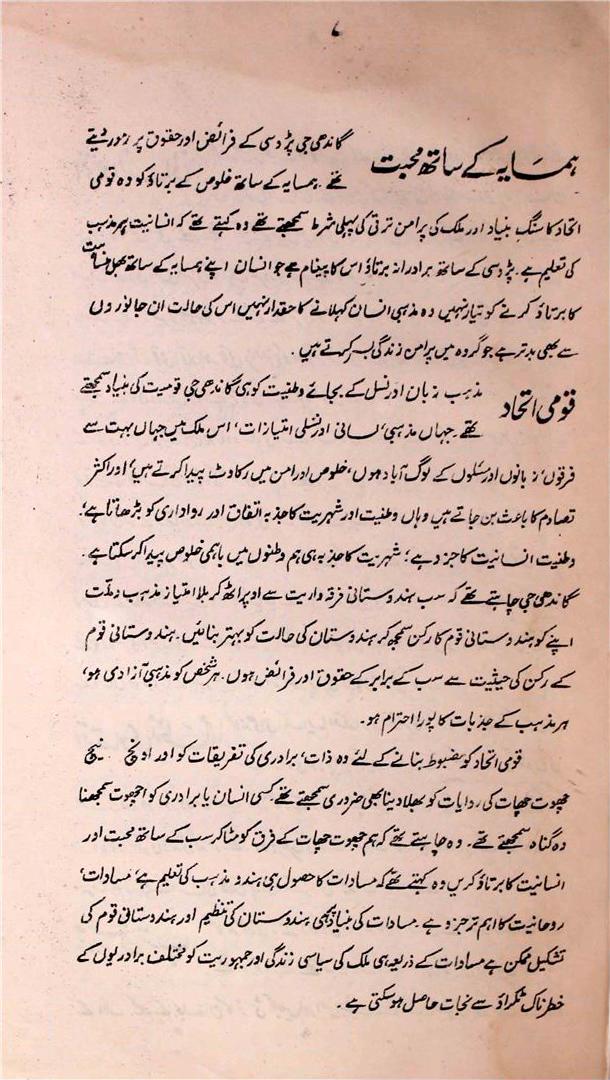 ہمسایہ کے ساتھ محبت
گاندھی جی پڑدسی کے فرائض اور حقوق پر زور دیتے
تھے۔ ہمسایہ کے ساتھ خلوص کے برتاؤ کو وہ قومی
اتحاد کا سنگ بنیاد اور ملک کی پرامن ترقی کی پہلی شرط سمجھتے تھے وہ کہتے تھے کہ انسانیت ہر مذہب
کی تعلیم ہے۔ پڑدسی کے ساتھ برادرانہ برتاؤ اس کا پیغام ہے جو انسان اپنے ہمسایہ کے ساتھ بھل منساہت
کا برتاؤ کرنے کو تیار نہیں وہ مذہبی انسان کہلانے کا حقدار نہیں اس کی حالت ان جانوروں
سے بھی بدتر ہے جو گروہ میں پرامن زندگی بسر کرتے ہیں۔
قومی اتحاد
مذہب زبان اور نسل کے بجائے وطنیت کو ہی گاندھی جی قومیت کی بنیاد سمجھتے
تھے۔ جہاں مذہبی، لسانی اور نسلی امتیازات، اس ملک میں جہاں بہت سے
فرقوں، زبانوں اور نسلوں کے لوگ آباد ہوں، خلوص اور امن میں رکاوٹ پیدا کرتے ہیں، اور اکثر
تصادم کا باعث بن جاتے ہیں وہاں وطنیت اور شہریت کا جذبہ اتفاق اور رواداری کو بڑھاتا ہے؛
وطنیت انسانیت کا جزو ہے؛ شہریت کا جذبہ ہی ہم وطنوں میں باہمی خلوص پیدا کر سکتا ہے۔
گاندھی جی چاہتے تھے کہ سب ہندوستانی فرقہ واریت سے اوپر اٹھ کر بلا امتیاز مذہب و ملت
اپنے کو ہندوستانی قوم کا رکن سمجھ کر ہندوستان کی حالت کو بہتر بنائیں۔ ہندوستانی قوم
کے رکن کی حیثیت سے سب کے برابر کے حقوق اور فرائض ہوں۔ ہر شخص کو مذہبی آزادی ہو،
ہر مذہب کے جذبات کا پورا احترام ہو۔
قومی اتحاد کو مضبوط بنانے کے لئے وہ ذات، برادری کی تفریقات کو اور اونچ نیچ
چھوت چھات کی روایات کو بھلا دینا بھی ضروری سمجھتے تھے۔ کسی انسان یا برادری کو اچھوت سمجھنا
وہ گناہ سمجھتے تھے۔ وہ چاہتے تھے کہ ہم چھوت چھات کے فرق کو مٹا کر سب کے ساتھ محبت اور
انسانیت کا برتاؤ کریں وہ کہتے تھے کہ مساوات کا حصول ہی ہندو مذہب کی تعلیم ہے، مساوات،
روحانیت کا اہم تر جزو ہے۔ مساوات کی بنیاد پر ہی ہندوستان کی تنظیم اور ہندوستانی قوم کی
تشکیل ممکن ہے مساوات کے ذریعہ ہی ملک کی سیاسی زندگی اور جمہوریت کو مختلف برادریوں کے
خطرناک ٹکراؤ سے نجات حاصل ہو سکتی ہے۔